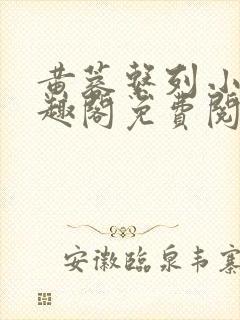 黄蓉系列小
趣阁免费阅
安徽临泉韦寨